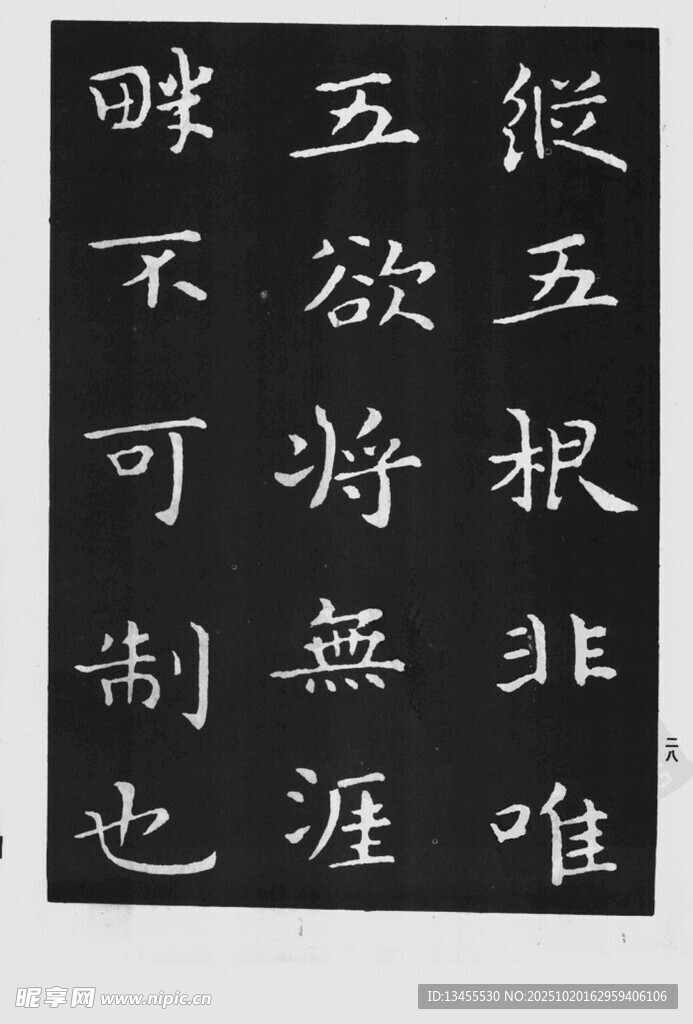 縱五根非唯
五欲将無涯
畔不可制也
二八
昵享网 www.nipic.cn
ID:13455530 NO:20251020162959406106